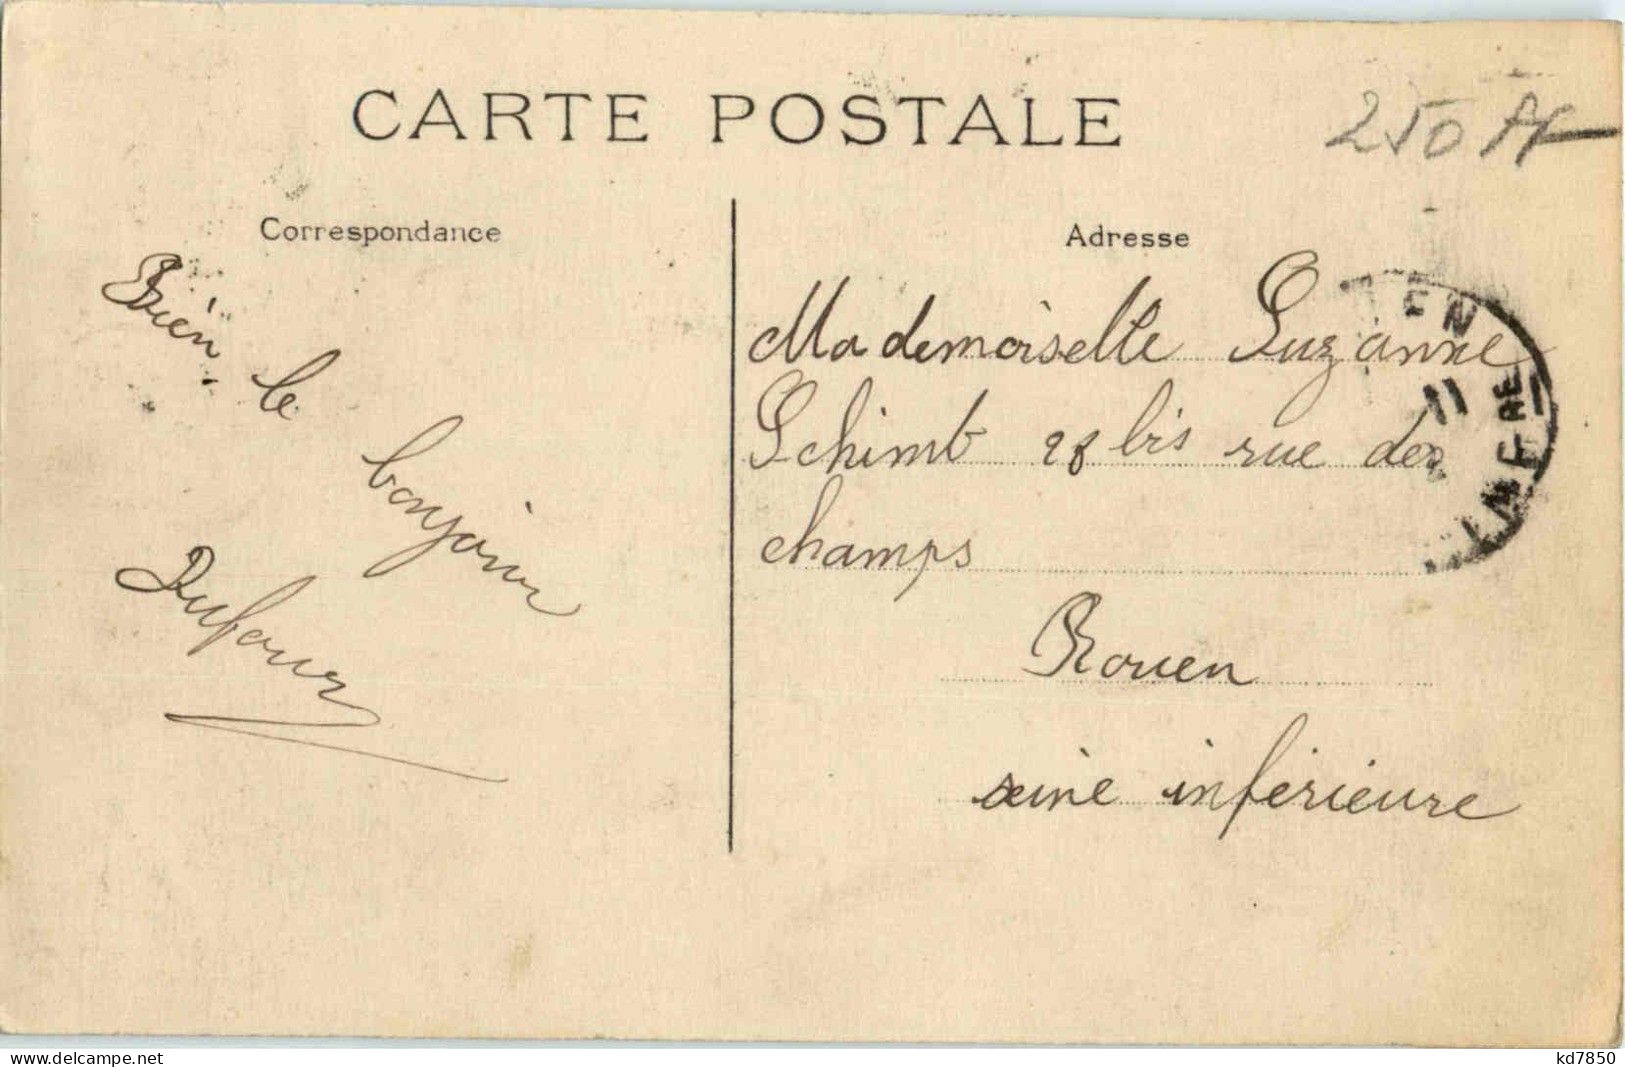 CARTE POSTALE
250
Correspondance
Bien
le
bonjour
Dufour
Adresse
Mademoiselle Suzanne
Schimb 28 bis rue des
champs
Rouen
seine inférieure
EN
11
INFRE
www.delcampe.net
kd7850